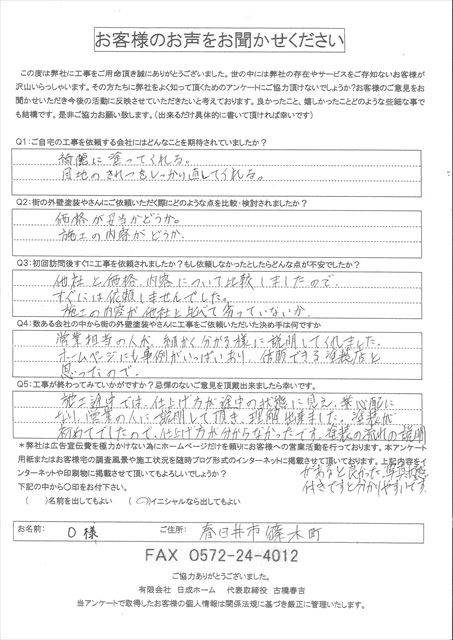 お客様のお声をお聞かせください
この度は弊社に工事をご用命頂き誠にありがとうございました。世の中には弊社の存在やサービスをご存知ないお客様が
沢山いらっしゃいます。その方たちに弊社をよく知って頂くためのアンケートにご協力頂けないでしょうか?お客様のご意見をお
聞かせいただき今後の活動に反映させていただきたいと考えております。良かったこと、嬉しかったことどのような些細な事で
も結構です。是非ご協力お願い致します。(出来るだけ具体的に書いて頂ければ幸いです)
Q1:ご自宅の工事を依頼する会社にはどんなことを期待されていましたか?
綺麗に塗ってくれる。
目地のきれつをしっかり直してくれる。
Q2:街の外壁塗装やさんにご依頼いただく際にどのような点を比較・検討されましたか?
価格が妥当かどうか。
施工の内容がどうか。
Q3:初回訪問後すぐに工事を依頼されましたか?もし依頼しなかったとしたらどんな点が不安でしたか?
他社と価格、内容について比較しましたので、
すぐには依頼しませんでした。
施工の内容が他社と比べて劣っていないか。
Q4:数ある会社の中から街の外壁塗装やさんに工事をご依頼いただいた決め手は何ですか
営業担当の人が、細かく分かる様に説明してくれました。
ホームページにも事例がいっぱいあり、信頼できる塗装店と
思ったので。
Q5:工事が終わってみていかがですか?忌憚のないご意見を頂戴出来ましたら幸いです。
施工途中では、仕上げ方が途中の状態に見え、若干心配に
なり、営業の人に説明して頂き、理解出来ました。塗装が
初めてでしたので、仕上げ方が分からなかったです。塗装の流れの説明
があると良かった。写真添
付きですと分かりやすいです。
*弊社は広告宣伝費を極力かけない為にホームページだけを頼りにお客様への営業活動を行っております。本アンケート
用紙またはお客様宅の調査風景や施工状況を随時ブログ形式のインターネットに掲載させて頂いております。上記内容をイ
ンターネットや印刷物に掲載させて頂いてもよろしいでしょうか?
下記の中から〇印をお付下さい。
( )名前を出してもよい (〇)イニシャルなら出してもよい
お名前: O 様 ご住所: 春日井市篠木町
FAX 0572-24-4012
ご協力ありがとうございました。
有限会社 日成ホーム 代表取締役 古橋春吉
当アンケートで取得したお客様の個人情報は関係法規に基づき厳正に管理いたします。